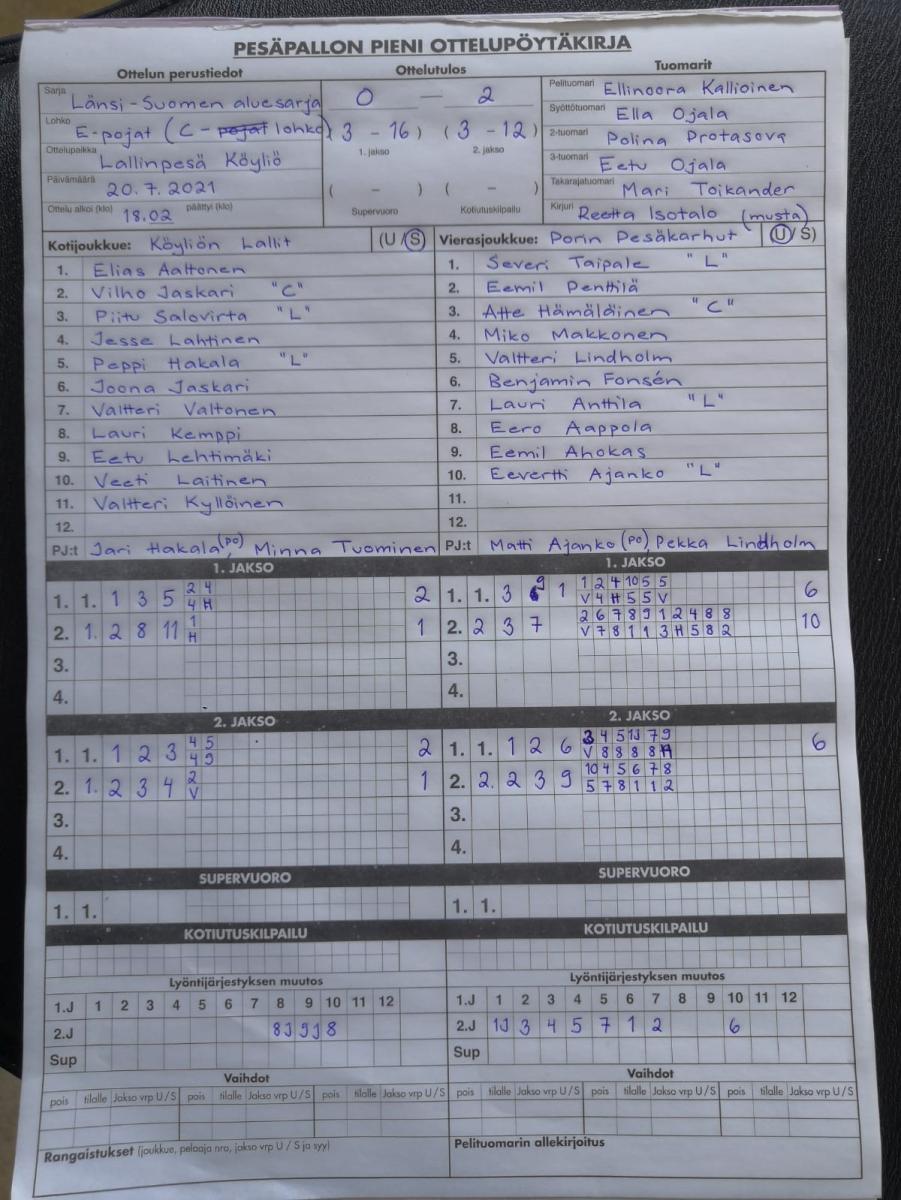 PESÄPALLON PIENI OTTELUPÖYTÄKIRJA
Ottelun perustiedot Ottelutulos Tuomarit
Sarja Länsi-Suomen aluesarja
Lohko E-pojat (C-pojat lohko)
Ottelupaikka Lallinpesä Köyliö
Päivämäärä 20.7.2021
Ottelu alkoi (klo) 18.02 päättyi (klo)
0 — 2
(3 - 16) (3 - 12)
1. jakso 2. jakso
( - ) ( - )
Supervuoro Kotiutuskilpailu
Pelituomari Ellinoora Kallioinen
Syöttötuomari Ella Ojala
2-tuomari Polina Protasova
3-tuomari Eetu Ojala
Takarajatuomari Mari Toikander
Kirjuri Reetta Isotalo (musta)
Kotijoukkue: Köyliön Lallit (U/S)
1. Elias Aaltonen
2. Vilho Jaskari "C"
3. Piitu Salovirta "L"
4. Jesse Lahtinen
5. Peppi Hakala "L"
6. Joona Jaskari
7. Valtteri Valtonen
8. Lauri Kemppi
9. Eetu Lehtimäki
10. Veeti Laitinen
11. Valtteri Kyllöinen
12.
PJ:t Jari Hakala (po), Minna Tuominen
Vierasjoukkue: Porin Pesäkarhut (U/S)
1. Severi Taipale "L"
2. Eemil Penttilä
3. Atte Hämäläinen "C"
4. Miko Makkonen
5. Valtteri Lindholm
6. Benjamin Fonsén
7. Lauri Anttila "L"
8. Eero Aappola
9. Eemil Ahokas
10. Eevertti Ajanko "L"
11.
12.
PJ:t Matti Ajanko (po), Pekka Lindholm
1. JAKSO
1. 1. 1 3 5 2 4 2
4 H
2. 1. 2 8 11 1 1
H
3.
4.
1. JAKSO
1. 1. 3 9 1 1 2 4 10 5 5 6
V 4 H 5 5 V
2. 2 3 7 2 6 7 8 9 1 2 4 8 8 10
V 7 8 1 1 3 H 5 8 2
3.
4.
2. JAKSO
1. 1. 1 2 3 4 5 2
4 9
2. 1. 2 3 4 2 1
V
3.
4.
2. JAKSO
1. 1. 1 2 6 3 4 5 10 7 9 6
V 8 8 8 8 H
2. 2. 2 3 9 10 4 5 6 7 8
5 7 8 1 1 2
3.
4.
SUPERVUORO SUPERVUORO
1. 1. 1. 1.
KOTIUTUSKILPAILU KOTIUTUSKILPAILU
Lyöntijärjestyksen muutos
1.J 1 2 3 4 5 6 7 8 9 10 11 12
2.J
Sup
Lyöntijärjestyksen muutos
1.J 1 2 3 4 5 6 7 8 9 10 11 12
2.J 10 3 4 5 7 1 2 6
Sup
Vaihdot Vaihdot
pois tilalle Jakso vrp U/S pois tilalle Jakso vrp U/S pois tilalle Jakso vrp U/S pois tilalle Jakso vrp U/S pois tilalle Jakso vrp U/S pois tilalle Jakso vrp U/S
Rangaistukset (joukkue, pelaaja nro, jakso vrp U / S ja syy) Pelituomarin allekirjoitus